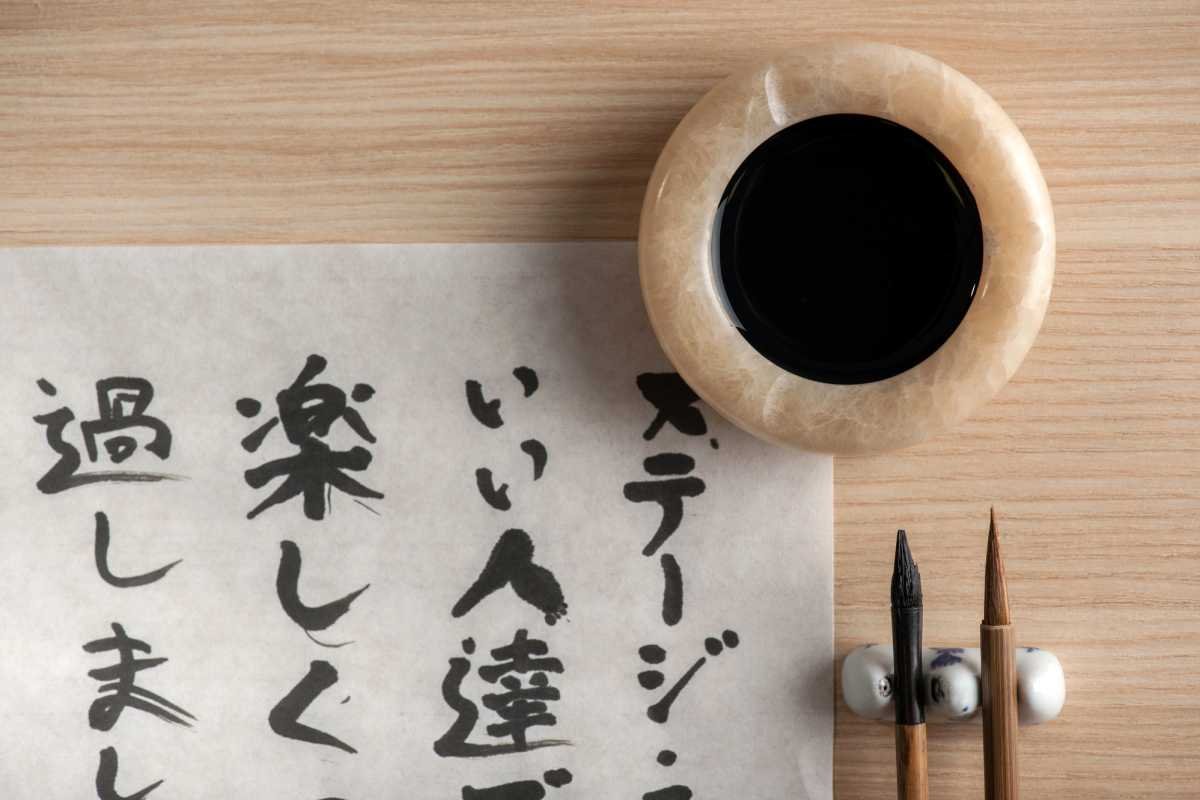 ステージ・
いい人達
楽しく
過しまし